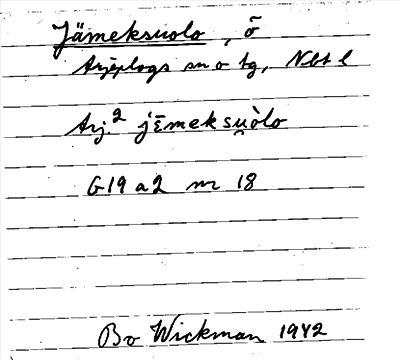 Jämeksuolo, ö
Arjeplogs sn o tg, Nbt l
Arj.² jēmeksu̯òlo
G19 a2 nr 18
Bo Wickman 1942